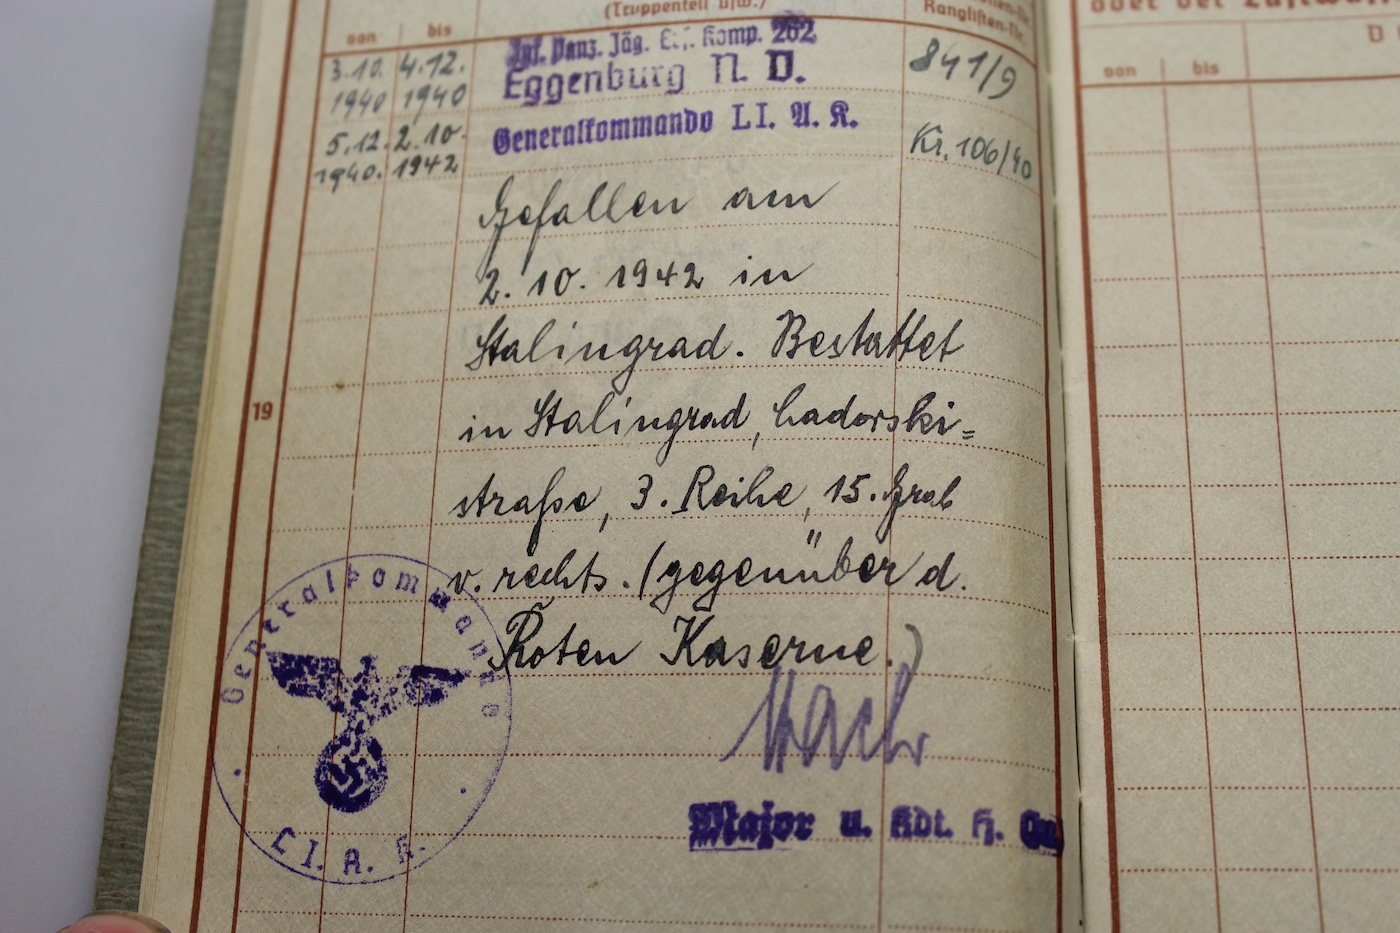 (Truppenteil usw.)
Ranglisten-Nr.
von bis
3.10. 4.12.
1940 1940
Inf. Panz. Jäg. Ers. Komp. 262
Eggenburg N. D.
841/9
5.12. 2.10.
1940. 1942
Generalkommando LI. A. K.
Kr. 106/40
Gefallen am
2. 10. 1942 in
Stalingrad. Bestattet
in Stalingrad, Ladorski=
straße, 3. Reihe, 15. Grab
v. rechts. (gegenüber d.
Roten Kaserne.)
19
Generalkommando
LI. A. K.
Major u. Kdt. H. Qu
oder der
von bis
D